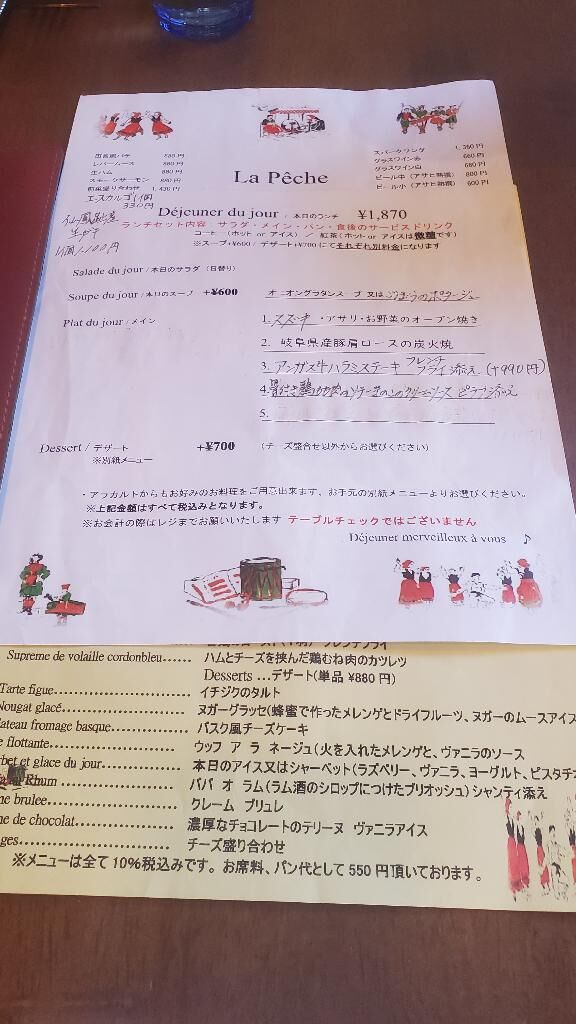 田舎風パテ 880円
レバームース 880円
生ハム 880円
スモークサーモン 880円
前菜盛り合わせ 1,430円
エスカルゴ1個
330円
La Pêche
スパークリング 1,380円
グラスワイン赤 660円
グラスワイン白 660円
ビール中（アサヒ熟撰） 800円
ビール小（アサヒ熟撰） 600円
生ガキ
1個1,100円
Déjeuner du jour / 本日のランチ ¥1,870
ランチセット内容 サラダ・メイン・パン・食後のサービスドリンク
コーヒー（ホット or アイス）／ 紅茶（ホット or アイスは微糖です）
※スープ+¥600/ デザート+¥700にてそれぞれ別料金になります
Salade du jour / 本日のサラダ（日替り）
Soupe du jour / 本日のスープ +¥600 オニオングラタンスープ 又は ごぼうのポタージュ
Plat du jour / メイン
1. スズキ・アサリ・お野菜のオーブン焼き
2. 岐阜県産豚肩ロースの炭火焼
3. アンガス牛ハラミステーキ フレンチフライ添え (+990円)
4. 骨付き鶏もも肉のソテー きのこのクリームソース ピラフ添え
5.
Dessert / デザート +¥700 （チーズ盛合せ以外からお選びください）
※別紙メニュー
・アラカルトからもお好みのお料理をご用意出来ます、お手元の別紙メニューよりお選びください。
※上記金額はすべて税込みとなります。
※お会計の際はレジまでお願いいたします テーブルチェックではございません
Déjeuner merveilleux à vous ♪
Supreme de volaille cordonbleu...... ハムとチーズを挟んだ鶏むね肉のカツレツ
Desserts …デザート(単品 ¥880 円)
Tarte figue.................... イチジクのタルト
Nougat glacé.................... ヌガーグラッセ(蜂蜜で作ったメレンゲとドライフルーツ、ヌガーのムースアイス
ateau fromage basque............ バスク風チーズケーキ
e flottante..................... ウッフ ア ラ ネージュ(火を入れたメレンゲと、ヴァニラのソース
rbet et glace du jour........... 本日のアイス又はシャーベット(ラズベリー、ヴァニラ、ヨーグルト、ピスタチオ
Rhum .................... ババ オ ラム(ラム酒のシロップにつけたブリオッシュ)シャンティ添え
ne brulee....................... クレーム ブリュレ
ne de chocolat.................. 濃厚なチョコレートのテリーヌ ヴァニラアイス
ges............................. チーズ盛り合わせ
※メニューは全て 10%税込みです。お席料、パン代として 550 円頂いております。